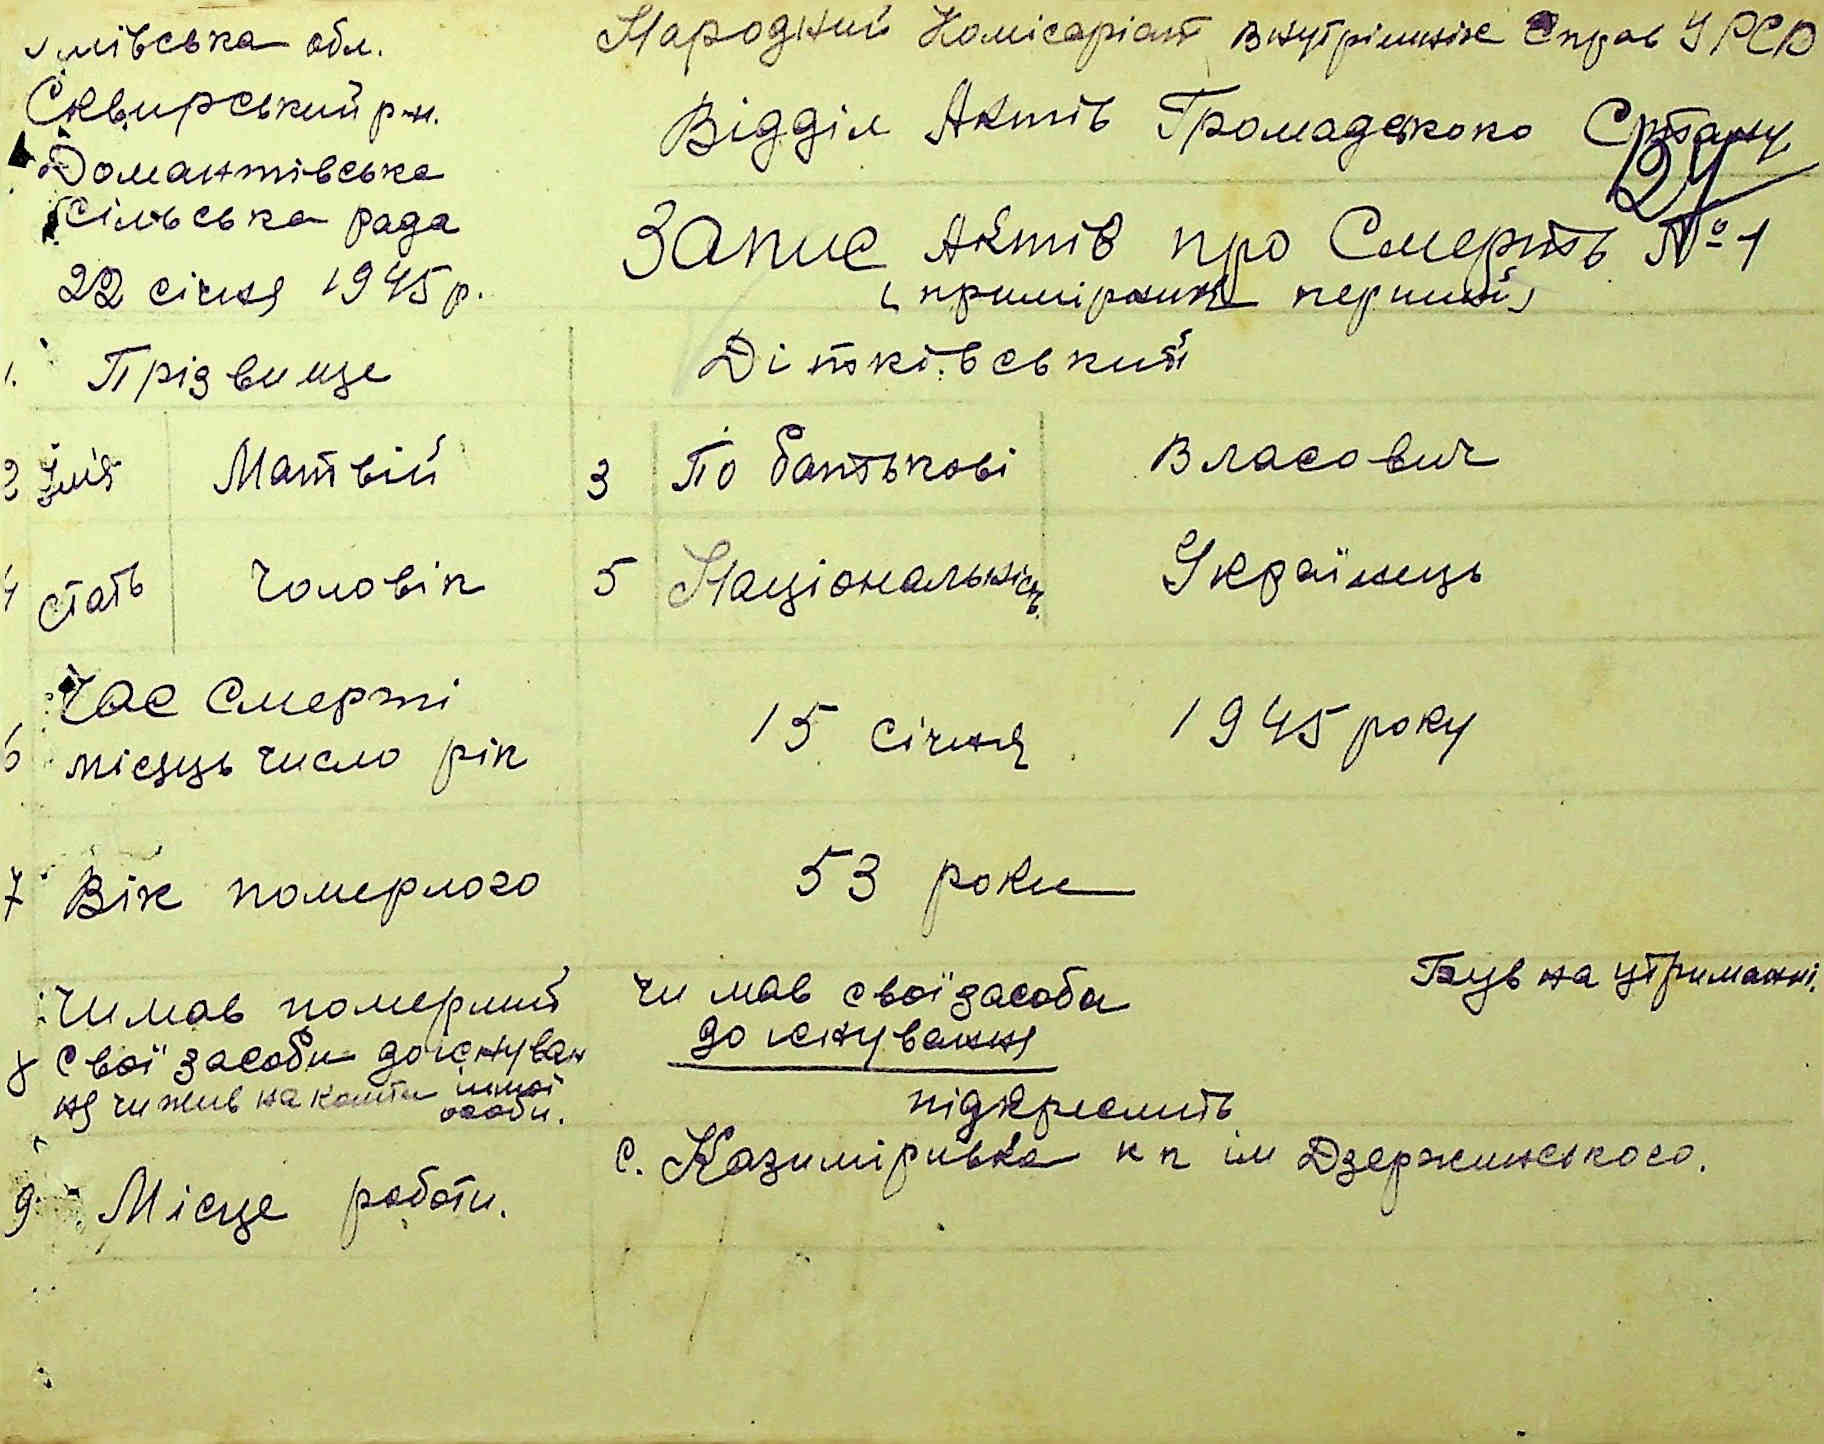 обл.
Сквирський р-н.
Домантівська
сільська рада
22 січня 1945 р.
Народний Комісаріат Внутрішніх Справ УРСР
Відділ Актів Громадського Стану
24
Запис Актів про Смерть № 1
(примірник перший)
1. Прізвище Дітківський
2 Імя Матвій 3 По батькові Власович
4 Стать Чоловік 5 Національність. Українець
Час Смерті
6 місяць число рік 15 січня 1945 року
7 Вік померлого 53 роки
Чи мав померший чи мав свої засоби Був на утриманні.
8 свої засоби до існуван до існування
ня чи жив на кошти іншої особи. підкреслить
9 Місце роботи. с. Казимірівка кп ім Дзержинського.